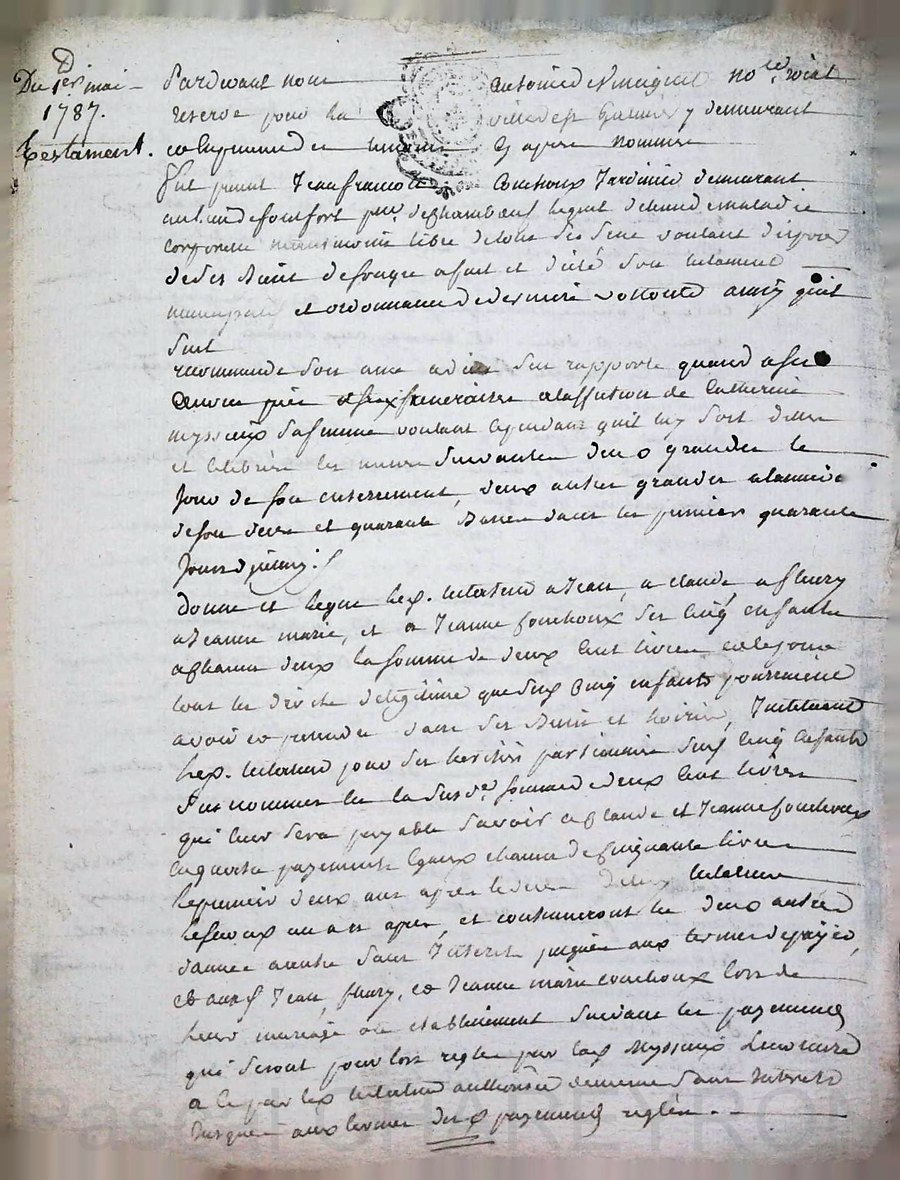 D
Du 1er mai
1787.
Testament.
Pardevant nous Antoine no.re roial
reservé pour la ville de St Galmier y demeurant
et en presence des temoins cy apres nommés
fut present Jean francois Couchoux Jardinier demeurant
au lieu de fontfort psse de Chambœuf lequel detenu de maladie
corporelle neanmoins libre de tous ses sens voulant disposer
de ses biens de son gré a fait et dicté son testament
nuncupatif et ordonnance de derniere vollonté ainsy quil
suit
recommande son ame a dieu s'en rapporte quand a ses
œuvres pies et frais funeraires a la affection de Catherine
Myssieux sa femme voulant cependant quil luy soit dites
et celebrées les messes suivantes deux grandes le
jour de son enterrement, deux autres grandes a l'année
de son deces et quarante basses dans les premiers quarante
jours d'iceluy.
donne et legue led. testateur a Jean, a claude, a fleury
a Jeanne marie, et a Jeanne Couchoux ses cinq enfants
a chacun deux la somme de deux cent livres et ce pour
tous les droits de legitime que sesd cinq enfants pourroient
avoir et pretendre dans ses biens et hoirie, Instituant
led. testateur pour ses heritiers particuliers sesd cinq enfants
sus nommés en la susd.e somme de deux cent livres
qui leur sera payable savoir a Claude et Jeanne Couchoux
en quatre payements egaux chacun de cinquante livres
le premier deux ans apres le deces dud testateur
le second un an apres, et continueront les deux autres
d'année a autre sans Interets jusques aux termes de payer,
et auxd Jean, fleury, et Jeanne marie Couchoux lors de
leur mariage ou etablissement suivant les payements
qui seront pour lors reglés par lad Myssieux
a ce par led testateur authorisée de meme sans Interets
jusques aux termes desd payements reglés.
CHAREYRON